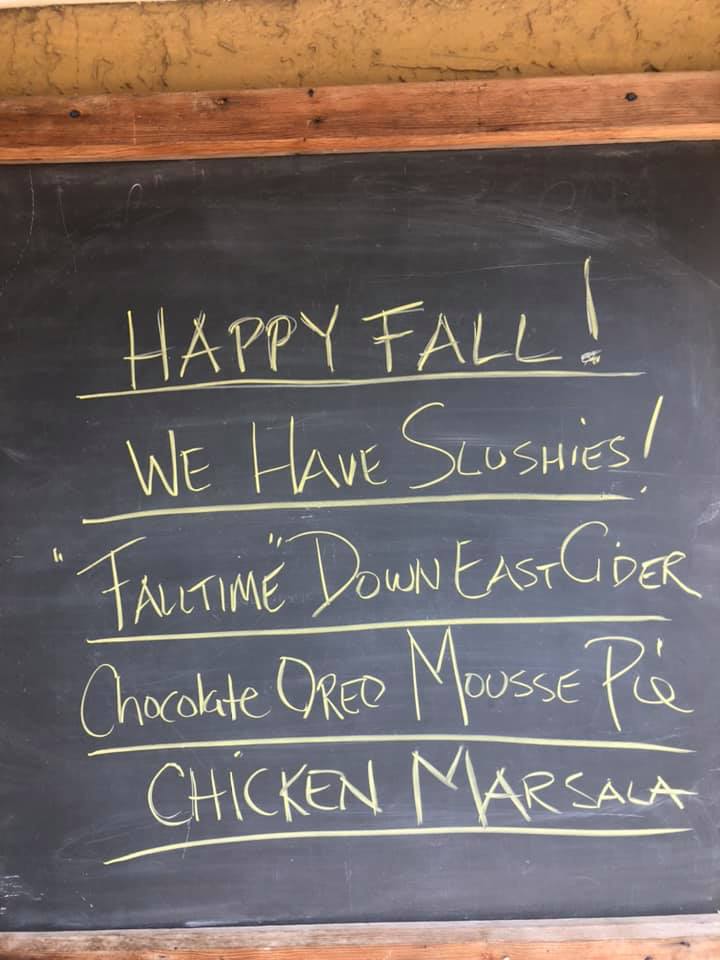 HAPPY FALL!
WE HAVE SLUSHIES!
"FALLTIME" DOWN EAST CIDER
Chocolate OREO MOUSSE PIE
CHICKEN MARSALA